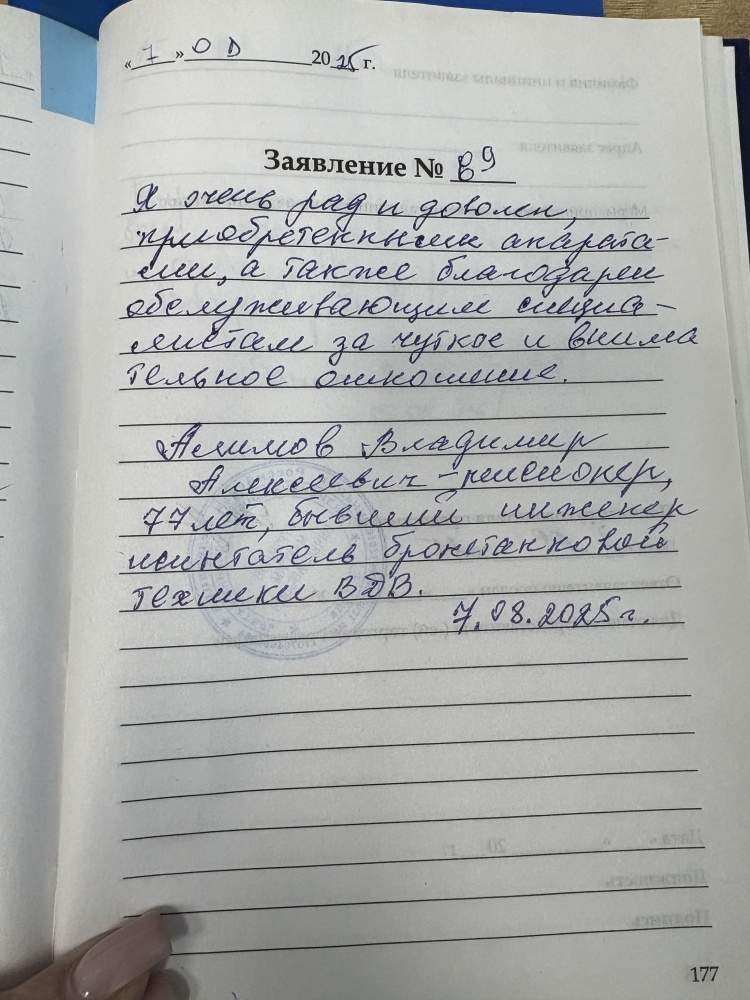 « 7 » 08 2025 г.
Заявление № 89
Я очень рад и доволен,
приобретенными апарата-
ми, а также благодарен
обслуживающим специа-
листам за чуткое и внима
тельное отношение.
Владимир
Алексеевич - пенсионер,
77 лет, бывший инженер
испытатель бронетанковой
техники ВДВ.
7.08.2025 г.
177